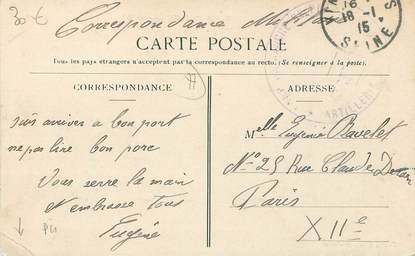 30 €
Correspondance Militaire
16
18-1
15
SEINE
CARTE POSTALE
Tous les pays étrangers n'acceptent pas la correspondance au recto. (Se renseigner à la poste).
CORRESPONDANCE
ADRESSE
ARTILLERIE
suis arrivés a bon port
ne pas lire bon porc
Vous serre la main
N embrasse tous
Eugène
Melle Eugénie Bavelet
N° 25 Rue Claude Decaen
Paris
XIIe